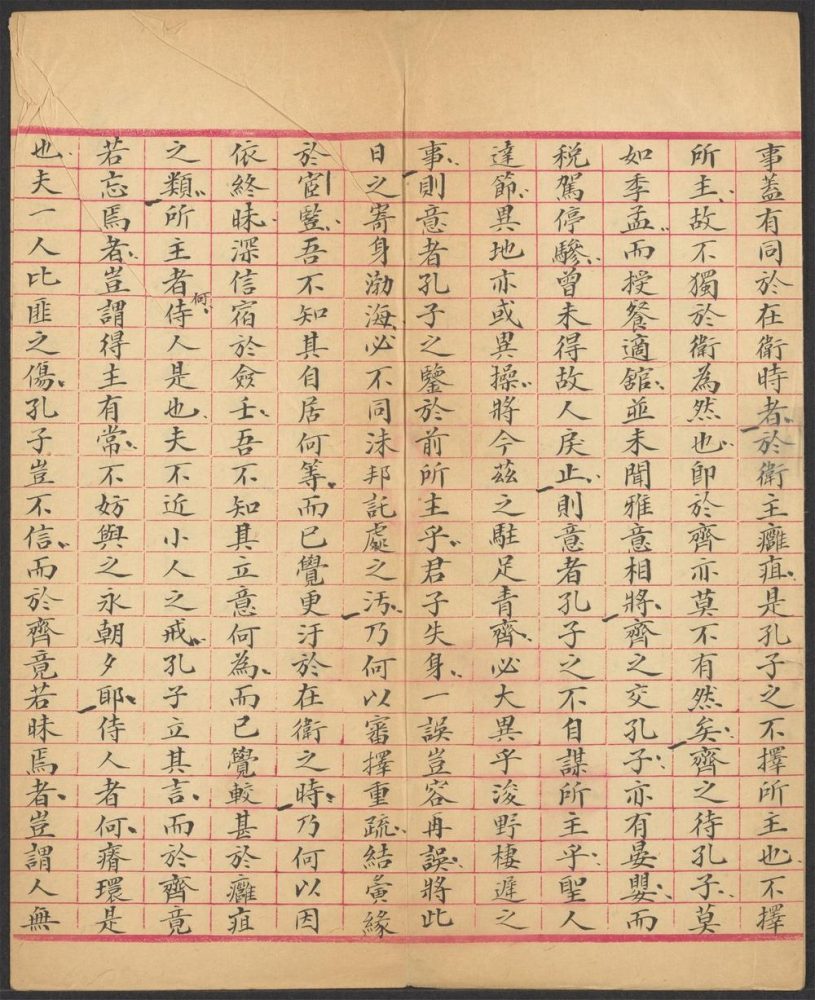 事蓋有同於在衛時者於衛主癰疽是孔子之不擇所主也不擇
所主故不獨於衛為然也卽於齊亦莫不有然矣齊之待孔子莫
如季孟而授餐適舘並未聞雅意相將齊之交孔子亦有晏嬰而
稅駕停驂曾未得故人戾止則意者孔子之不自謀所主乎聖人
達節異地亦或異操將今茲之駐足青齊必大異乎浚野棲遲之
事則意者孔子之鑒於前所主乎君子失身一誤豈容再誤將此
日之寄身渤海必不同沬邦託處之汚乃何以審擇重疏結夤緣
於宦豎吾不知其自居何等而已覺更汙於在衛之時乃何以因
依終昧深信宿於僉壬吾不知其立意何為而已覺較甚於癰疽
之類所主者何侍人是也夫不近小人之戒孔子立其言而於齊竟
若忘焉者豈謂得主有常不妨與之永朝夕耶侍人者何瘠環是
也夫一人比匪之傷孔子豈不信而於齊竟若昧焉者豈謂人無